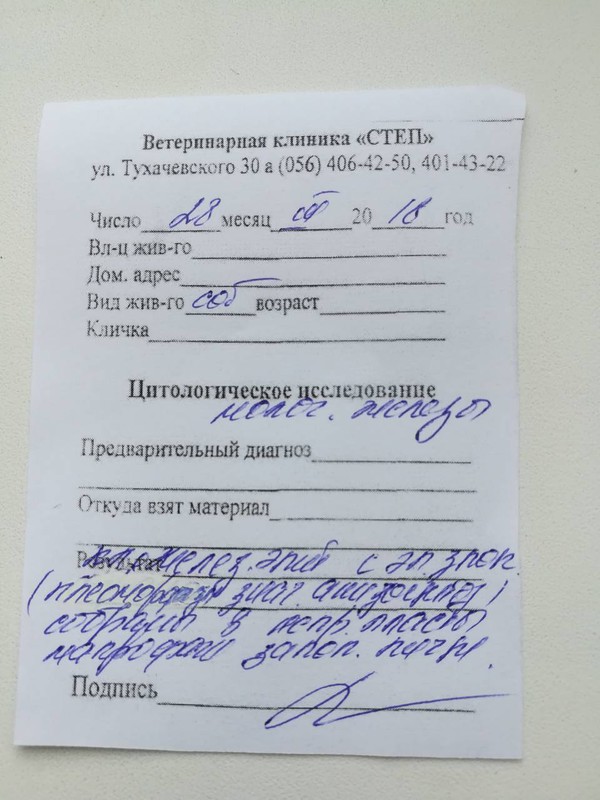 Ветеринарная клиника «СТЕП»
ул. Тухачевского 30 а (056) 406-42-50, 401-43-22
Число 28 месяц III 20 18 год
Вл-ц жив-го
Дом. адрес
Вид жив-го соб возраст
Кличка
Цитологическое исследование
молоч. железы
Предварительный диагноз
Откуда взят материал
Результат желез. эпит с
собраны в непр. пласты
макрофаги
Подпись